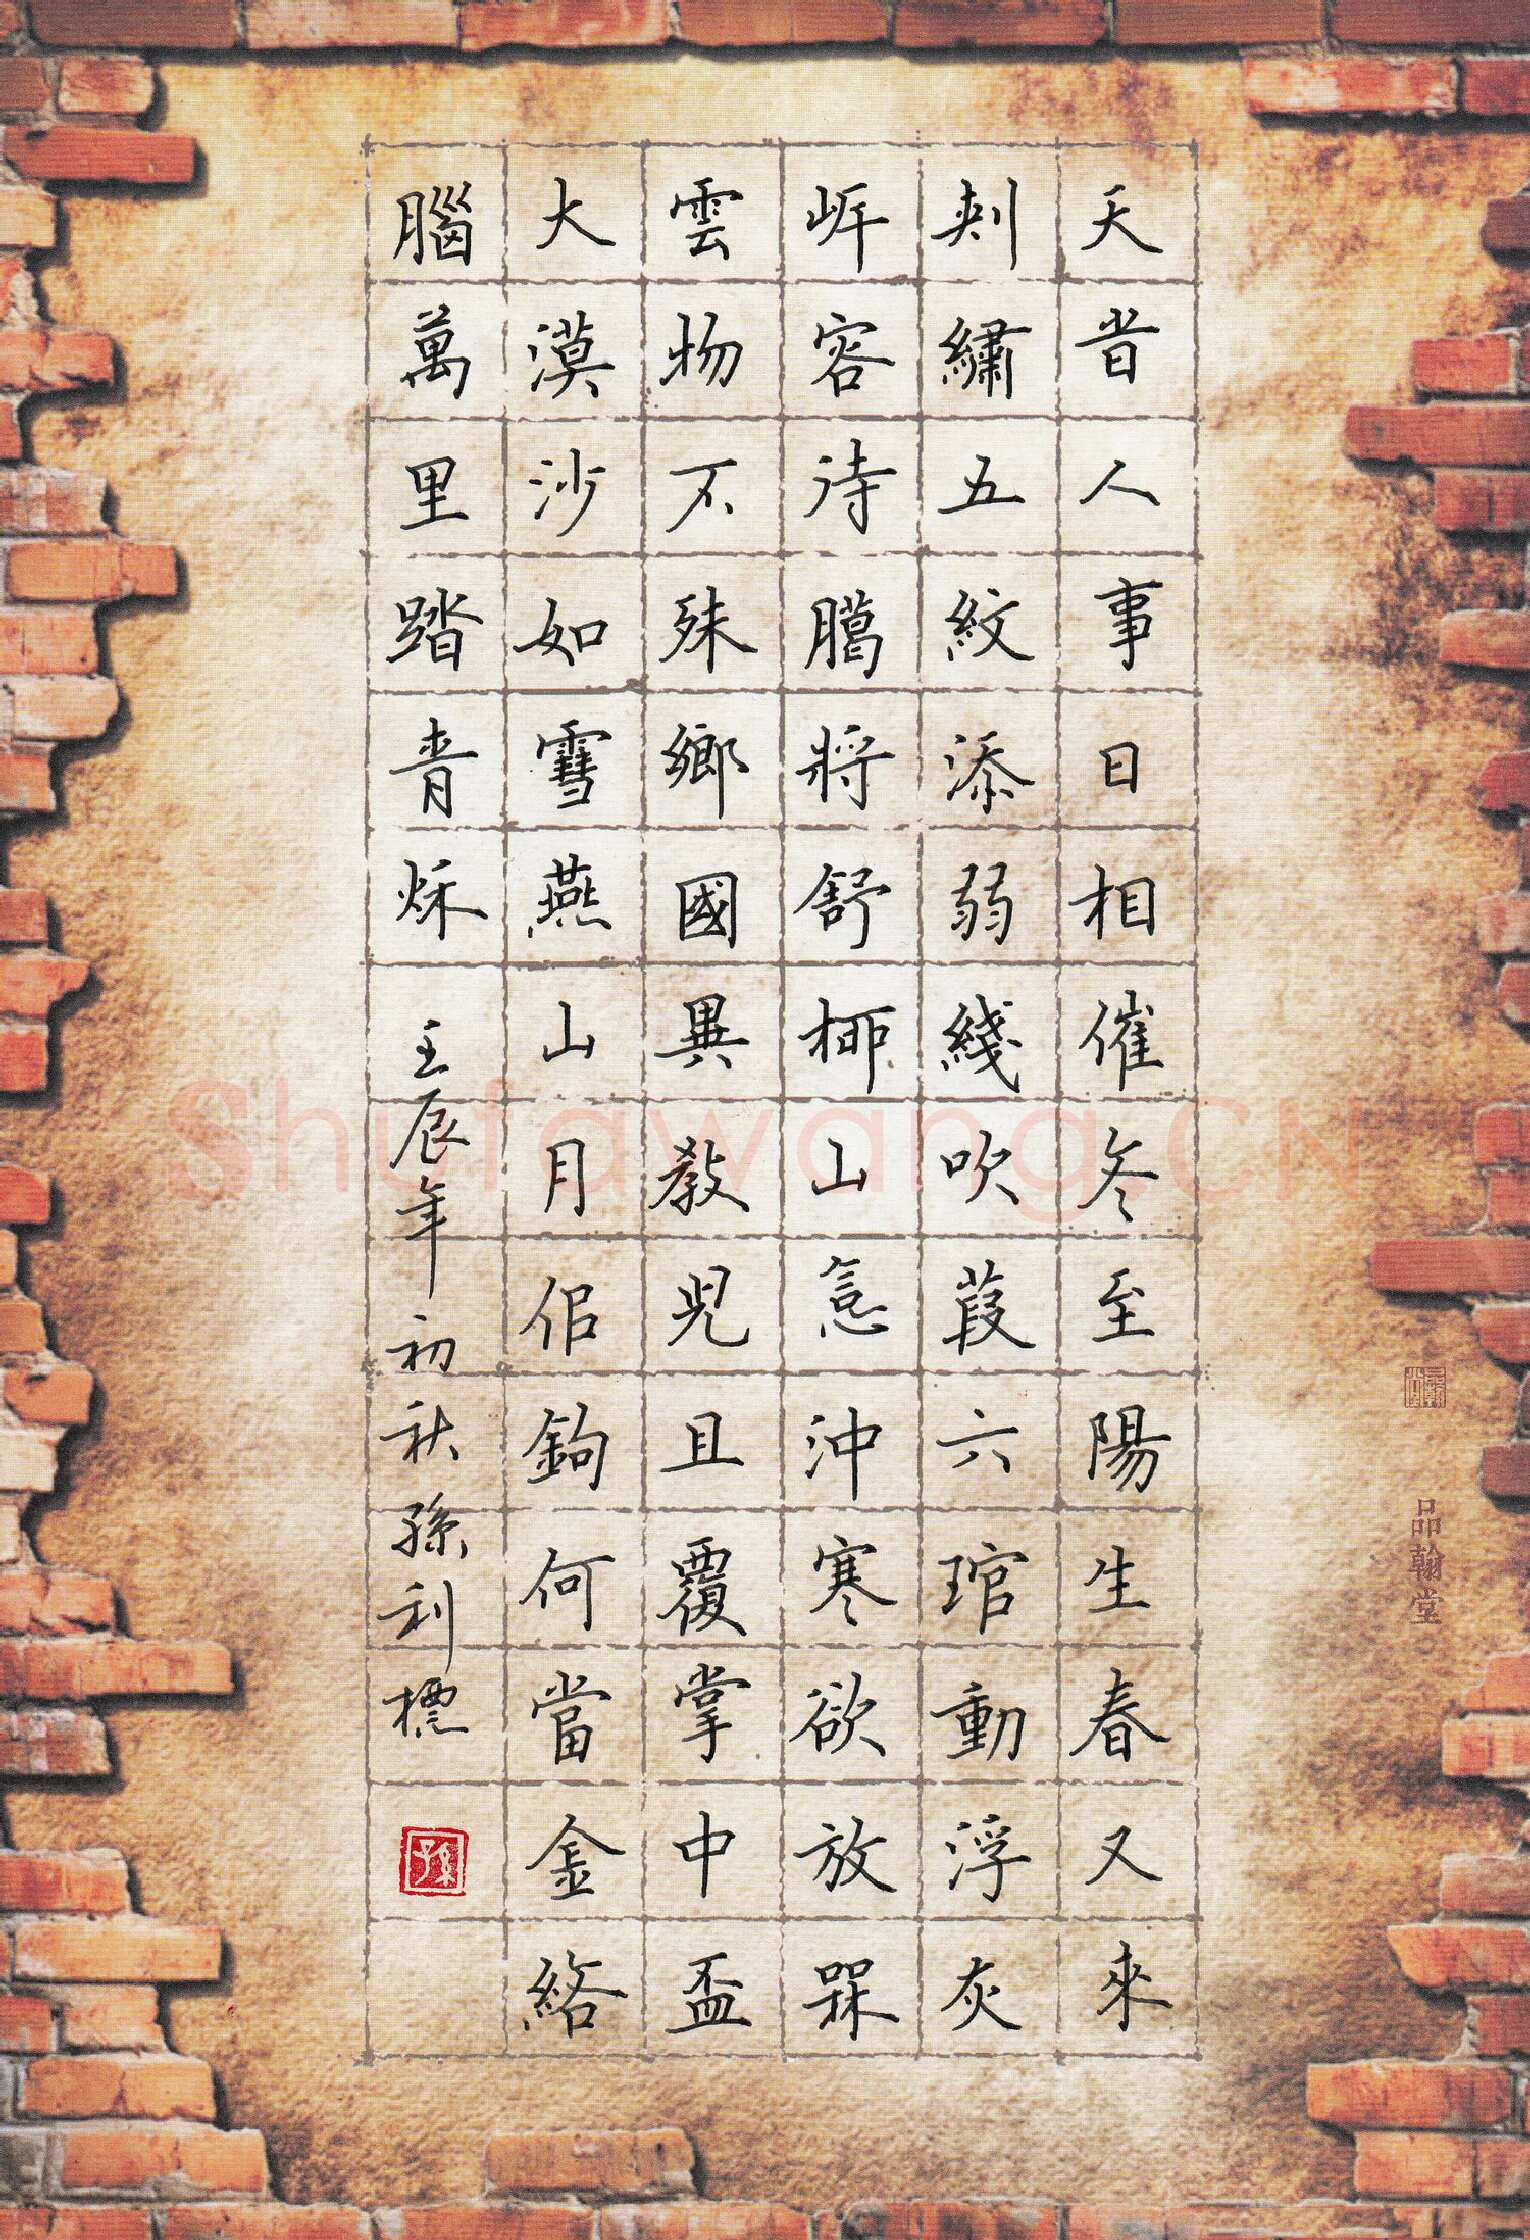 天旹人事日相催冬至陽生春又來
刺繡五紋添弱綫吹葭六琯動浮灰
岸容待臘將舒柳山意沖寒欲放槑
雲物不殊鄉國異教兒且覆掌中盃
大漠沙如雪燕山月佀鉤何當金絡
腦萬里踏青秌
壬辰年初秋孫利標
孫
品翰堂
Shufawang.CN